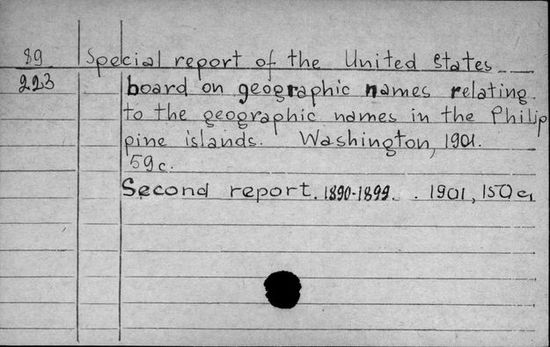 89 Special report of the United States
223 board on geographic names relating
to the geographic names in the Philip
pine islands. Washington, 1901.
59c.
Second report. 1890-1899. . 1901, 150c.